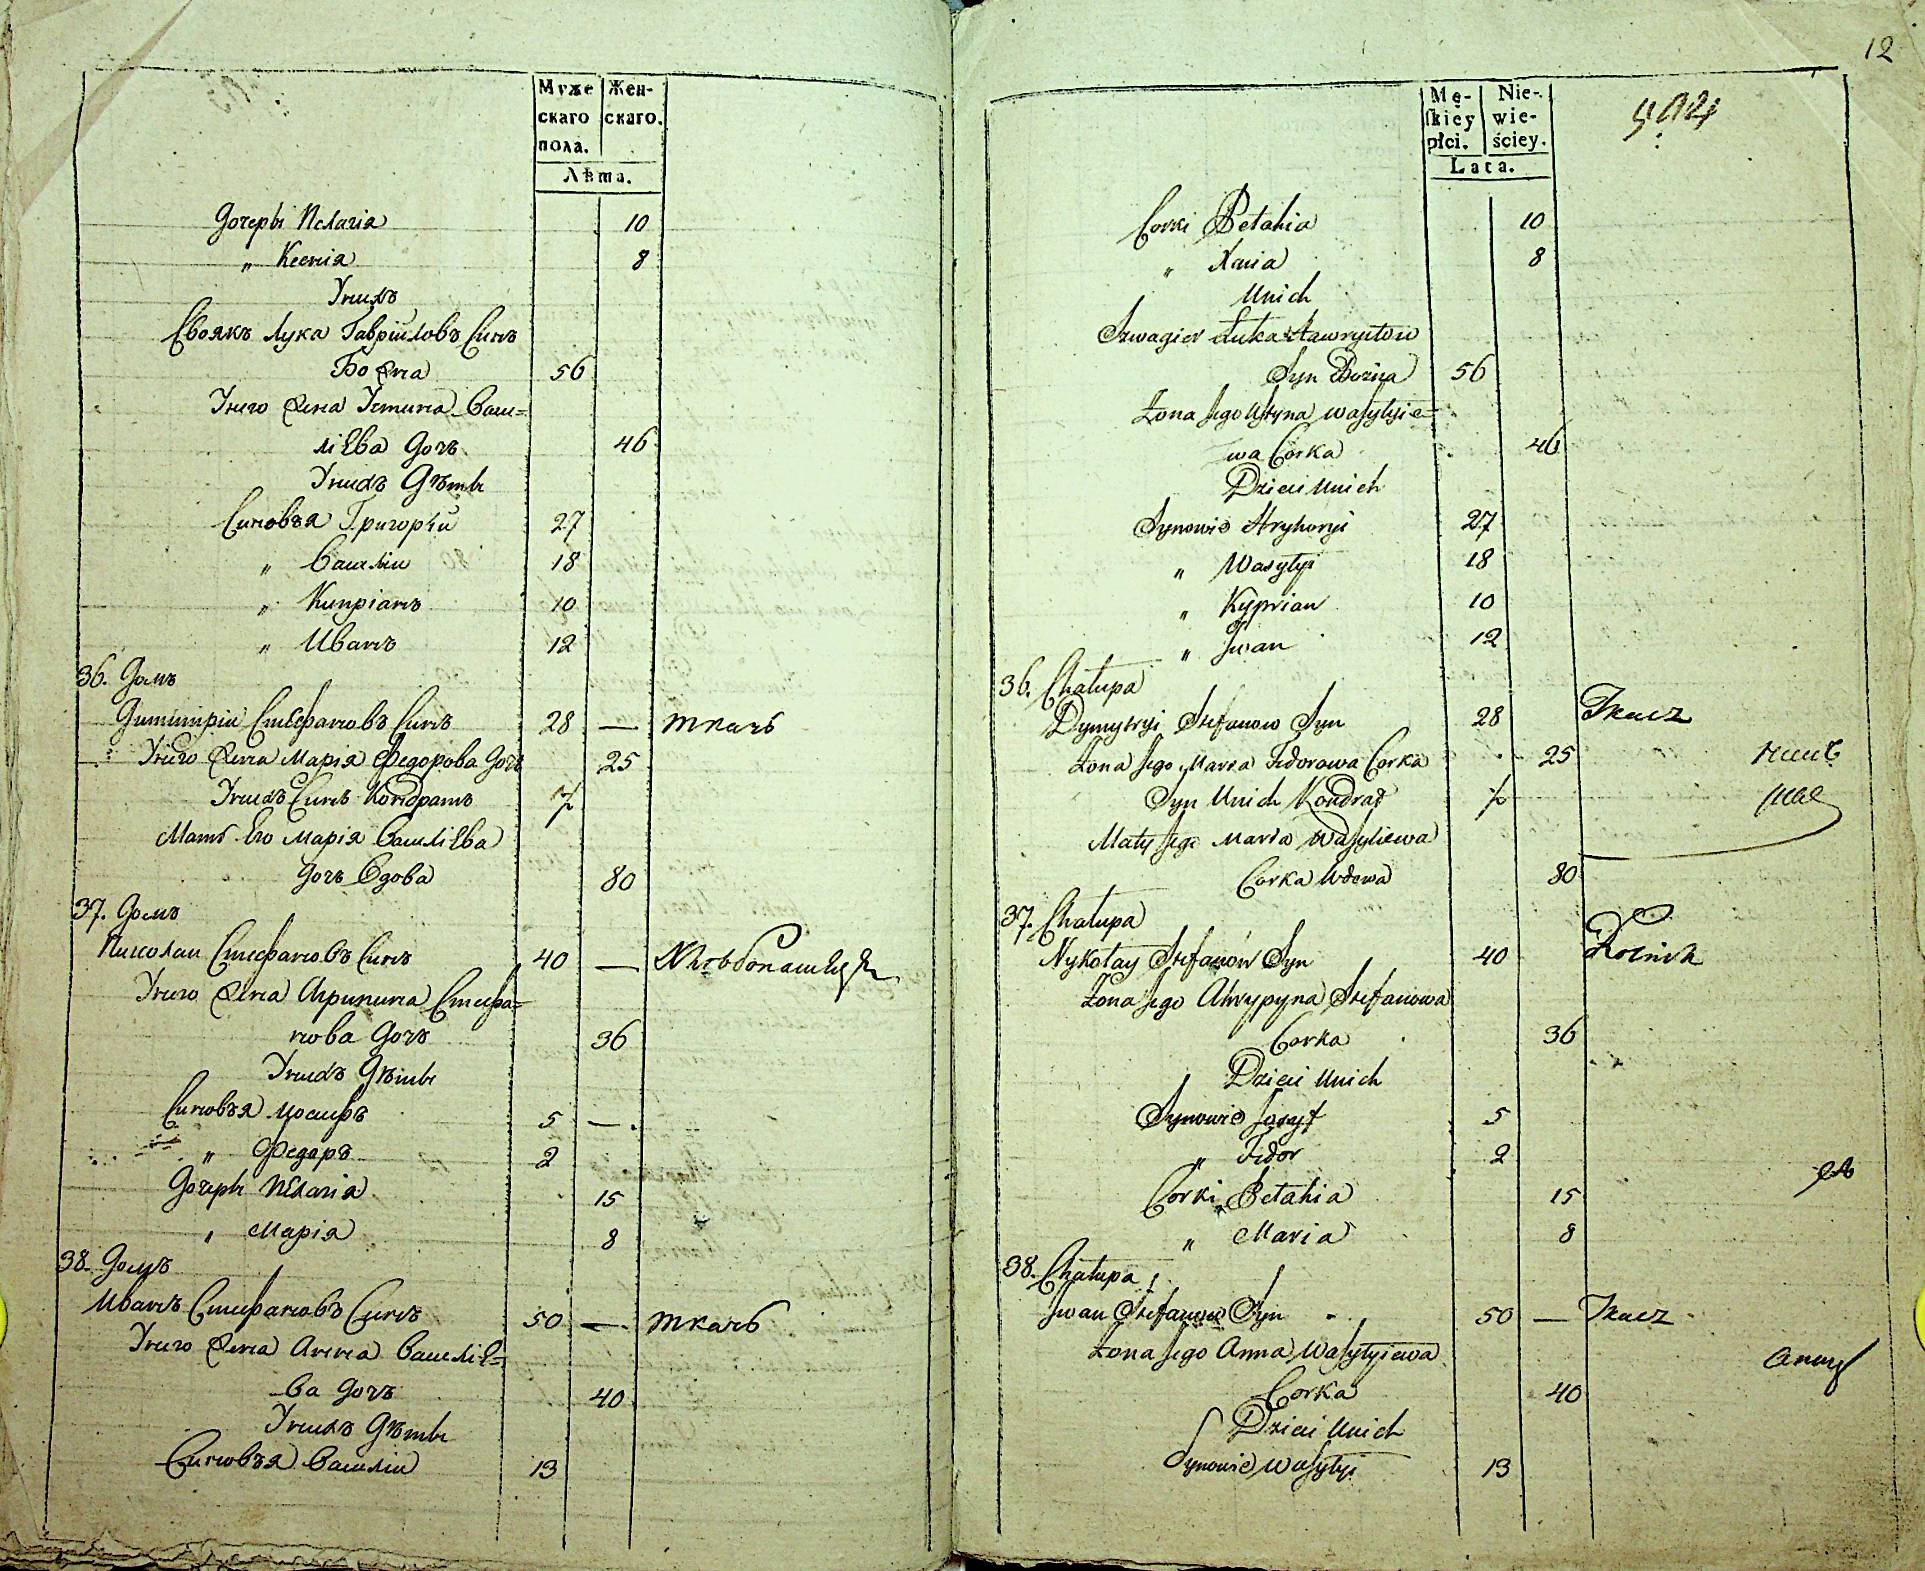 Муже
скаго
пола.
Жен-
скаго.
Лѣта.
Дочеры Пелагія 10
„ Ксенія 8
Унихъ
Своякъ Лука Гавріиловъ Синъ
Божна 56
Унего Жена Устина Васи=
ліева Дочъ 46
Унихъ Дѣты
Синовъя Григорій 27
„ Василій 18
„ Кипріанъ 10
„ Иванъ 12
36. Домъ
Димитрій Стефановъ Синъ 28 — ткачъ
Унего Жена Марія Федорова Дочъ 25
Унихъ Синъ Кондратъ
Матъ Его Марія Василіева
Дочъ Вдова 80
37. Домъ
Николай Стефановъ Синъ 40 — Хлѣбопашецъ
Унего Жена Агрипина Стефа=
нова Дочъ 36
Унихъ Дѣты
Синовъя Иосифъ 5 —
„ Федоръ 2
Дочеры Пелагія 15
„ Марія 8
38. Домъ
Иванъ Стефановъ Синъ 50 — ткачъ
Унего Жена Анна Василіе=
ва Дочъ 40
Унихъ Дѣты
Синовъя Василій 13
12
Mę-
skiey
płci.
Nie-
wie-
ściey.
Lata.
Corki Pelahia 10
„ Xenia 8
Unich
Szwagier Łuka Hawryłow
Syn Bożna 56
Żona Jego Ustyna Wasylyie=
wa Corka 46
Dzieci Unich
Synowie Hryhoryi 27
„ Wasylyi 18
„ Kyprian 10
„ Jwan 12
36. Chałupa
Dymytryi Stefanow Syn 28 Tkacz
Żona Jego Maria Fidorowa Corka 25
Syn Unich Kondrat
Maty Jego Maria Wasyliewa
Corka Wdowa 80
37. Chałupa
Nykołay Stefanów Syn 40 Rolnik
Żona Jego Ahrypyna Stefanowa
Corka 36
Dzieci Unich
Synowie Josyf 5
„ Fidor 2
Corki Pelahia 15
„ Maria 8
38. Chałupa
Jwan Stefanow Syn 50 — Tkacz
Żona Jego Anna Wasylyiewa
Corka 40
Dzieci Unich
Synowie Wasylyi 13